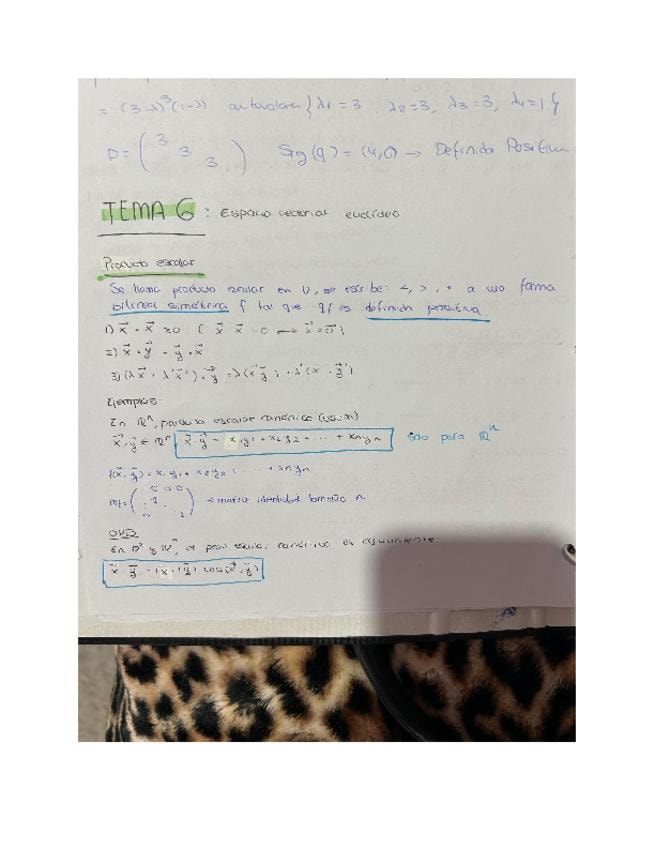 = (3-λ)³(1-λ) autovalores {λ₁=3 λ₂=3, λ₃=3, λ₄=1}
D = ( 3 3 3 1 ) Sig(q) = (4,0) → Definida Positiva
TEMA 6: Espacio vectorial euclídeo
Producto escalar
Se llama producto escalar en V, se escribe: <, >, • a una forma
bilineal simétrica f tal que qf es definida positiva
1) x⃗ · x⃗ ≥0 ( x⃗ x⃗ = 0 ⟷ x⃗ = 0⃗ )
2) x⃗ · y⃗ = y⃗ · x⃗
3) (λx⃗ + λ'x⃗')·y⃗ = λ(x⃗ y⃗) + λ'(x⃗'·y⃗)
Ejemplos:
En ℝⁿ, producto escalar canónico (usual)
x⃗, y⃗ ∈ ℝⁿ x⃗·y⃗ = x₁y₁ + x₂y₂ + ... + xₙyₙ Sólo para ℝⁿ
f(x⃗, y⃗) = x₁y₁ + x₂y₂ + ... + xₙyₙ
→ matriz identidad tamaño n
En y ℝ³, el prod escalar canónico es equivalente:
x⃗·y⃗ = |x⃗|·|y⃗| cos(x⃗,y⃗)